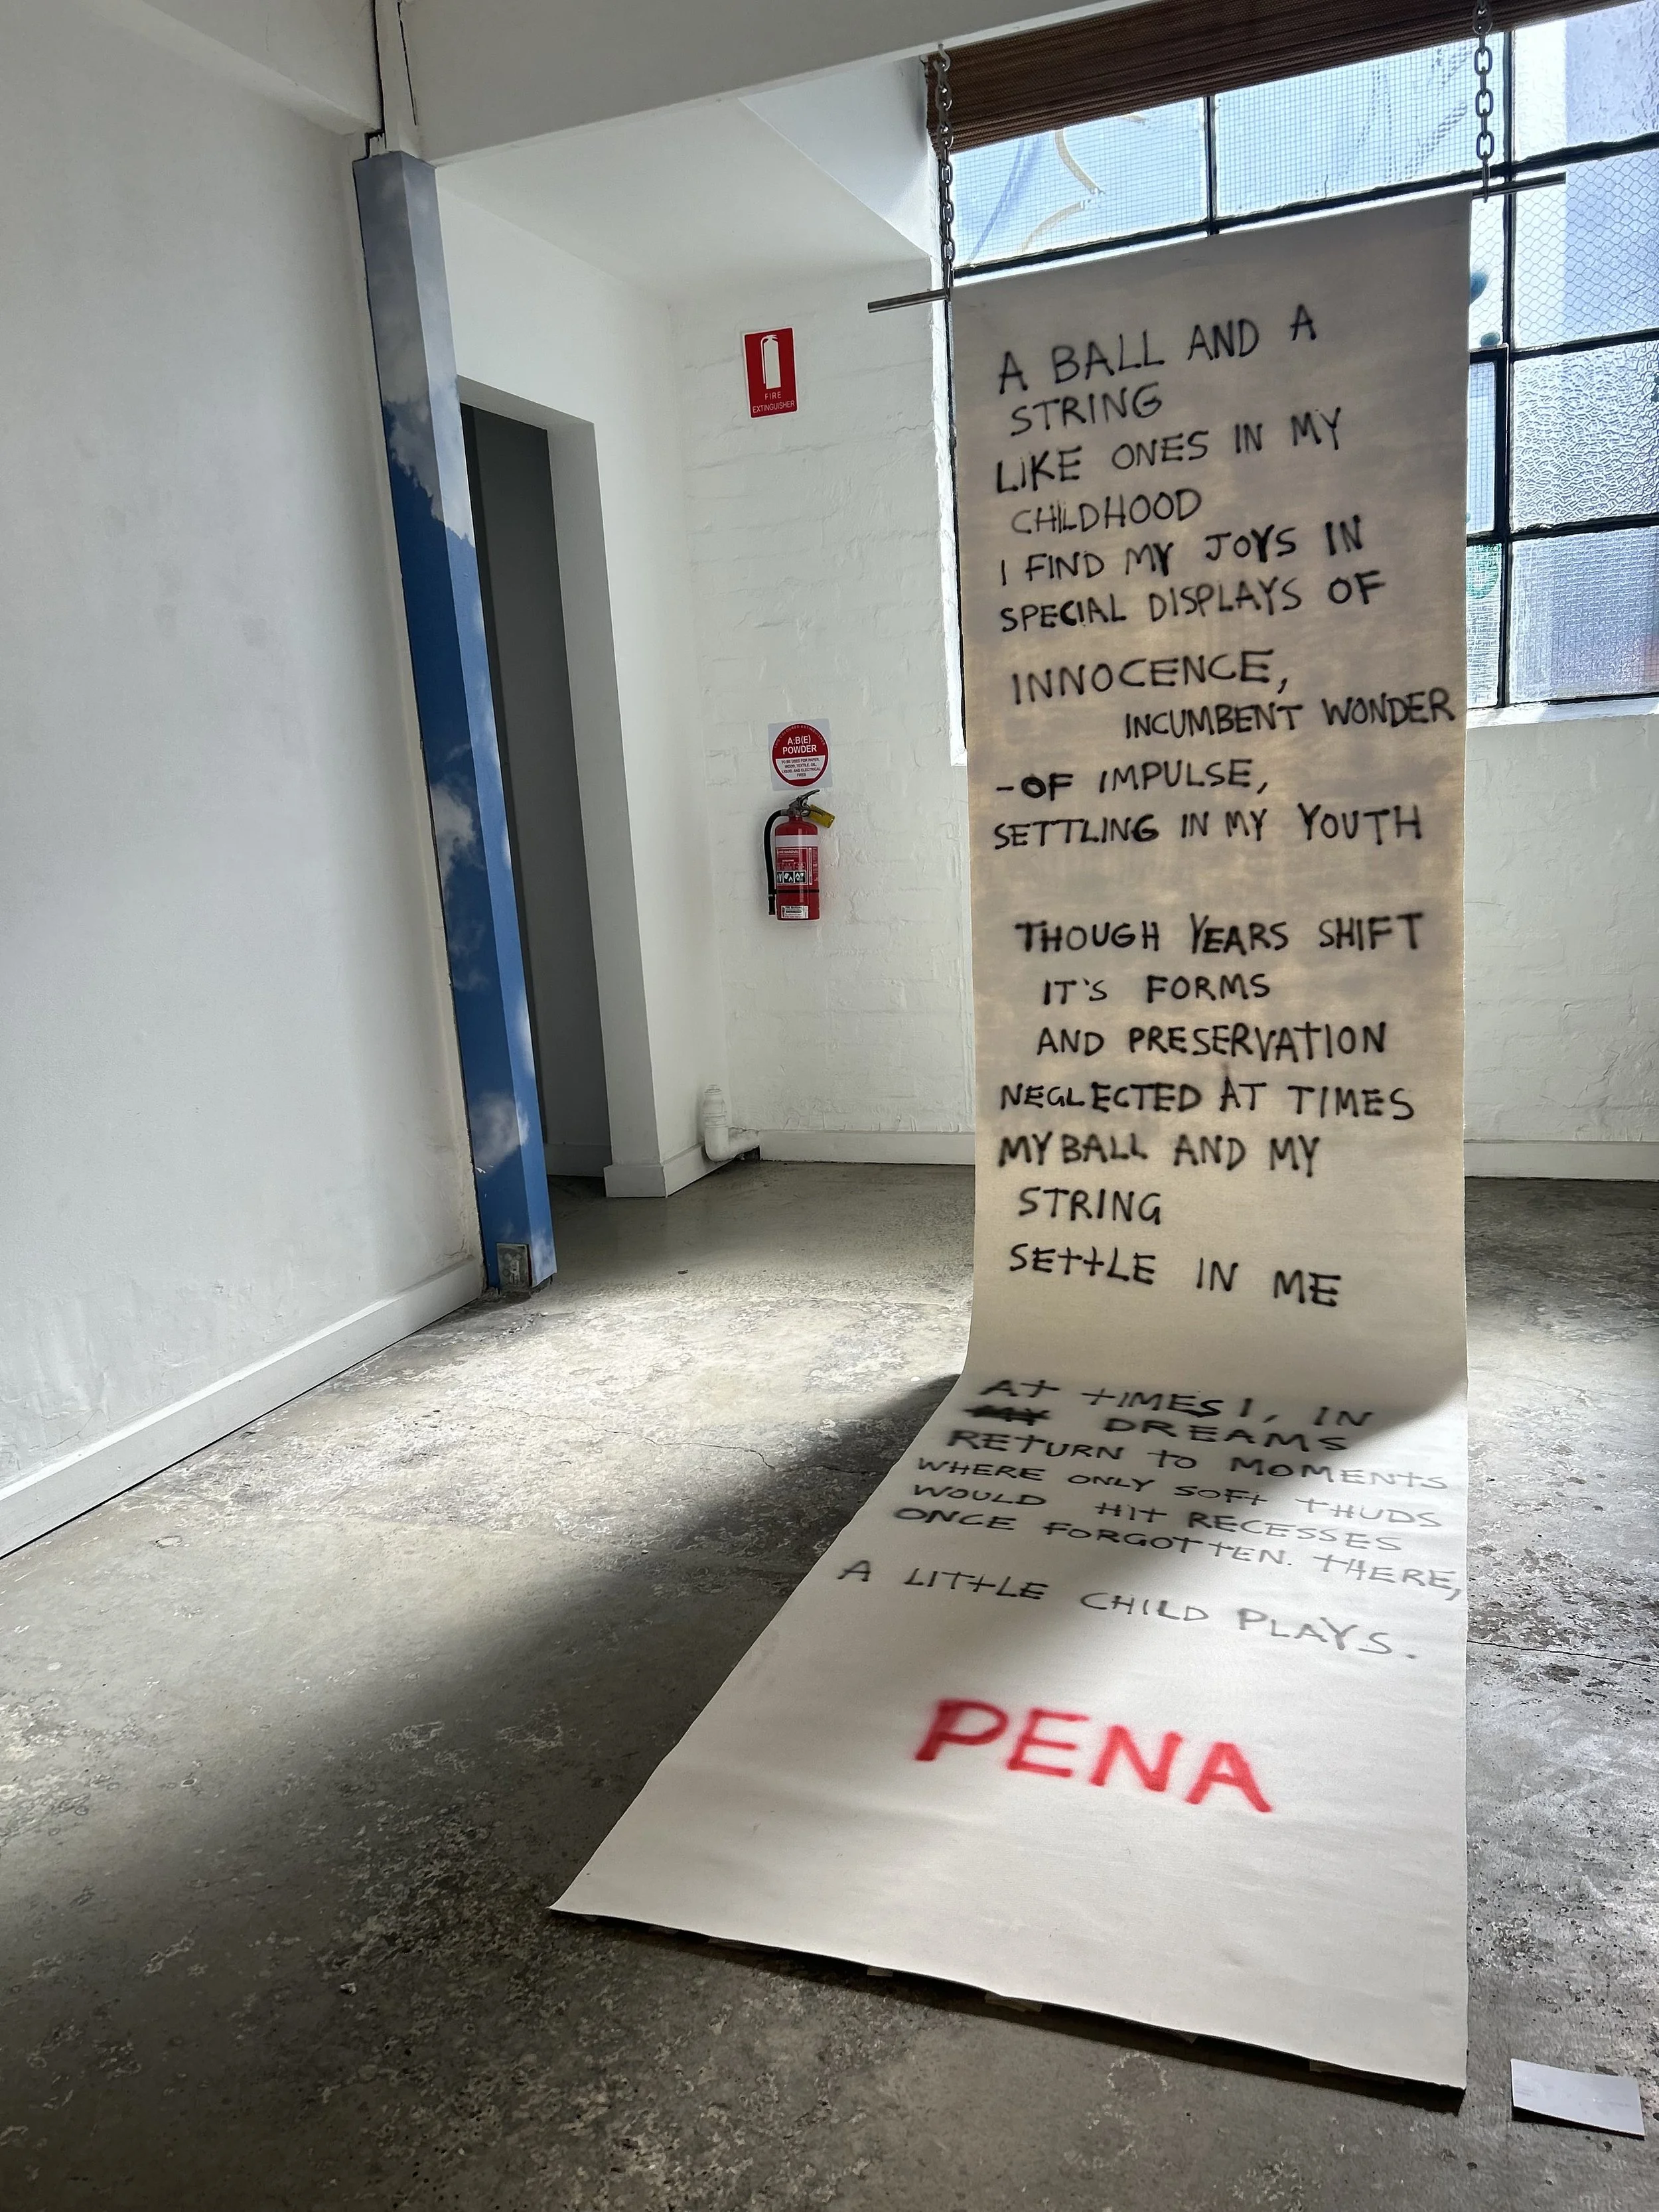 A BALL AND A
STRING
LIKE ONES IN MY
CHILDHOOD
I FIND MY JOYS IN
SPECIAL DISPLAYS OF
INNOCENCE,
INCUMBENT WONDER
-OF IMPULSE,
SETTLING IN MY YOUTH
THOUGH YEARS SHIFT
IT'S FORMS
AND PRESERVATION
NEGLECTED AT TIMES
MY BALL AND MY
STRING
SETTLE IN ME
AT TIMES I, IN
DREAMS
RETURN TO MOMENTS
WHERE ONLY SOFT THUDS
WOULD HIT RECESSES
ONCE FORGOTTEN. THERE,
A LITTLE CHILD PLAYS.
PENA
FIRE
EXTINGUISHER
A:B(E)
POWDER